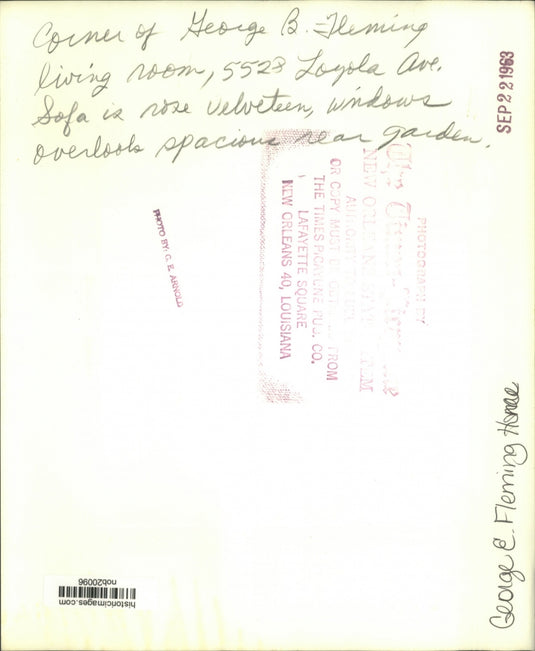 Corner of George B. Fleming
living room, 5523 Loyola Ave.
Sofa is rose velveteen, windows
overlook spacious rear garden.
SEP 22 1963
PHOTOGRAPH BY
The Times-Picayune
NEW ORLEANS STATES ITEM
OR COPY MUST FROM
THE TIMES-PICAYUNE PUB. CO.
LAFAYETTE SQUARE
NEW ORLEANS 40, LOUISIANA
PHOTO BY: G. E. ARNOLD
George E. Fleming Home
historicimages.com
nob20096